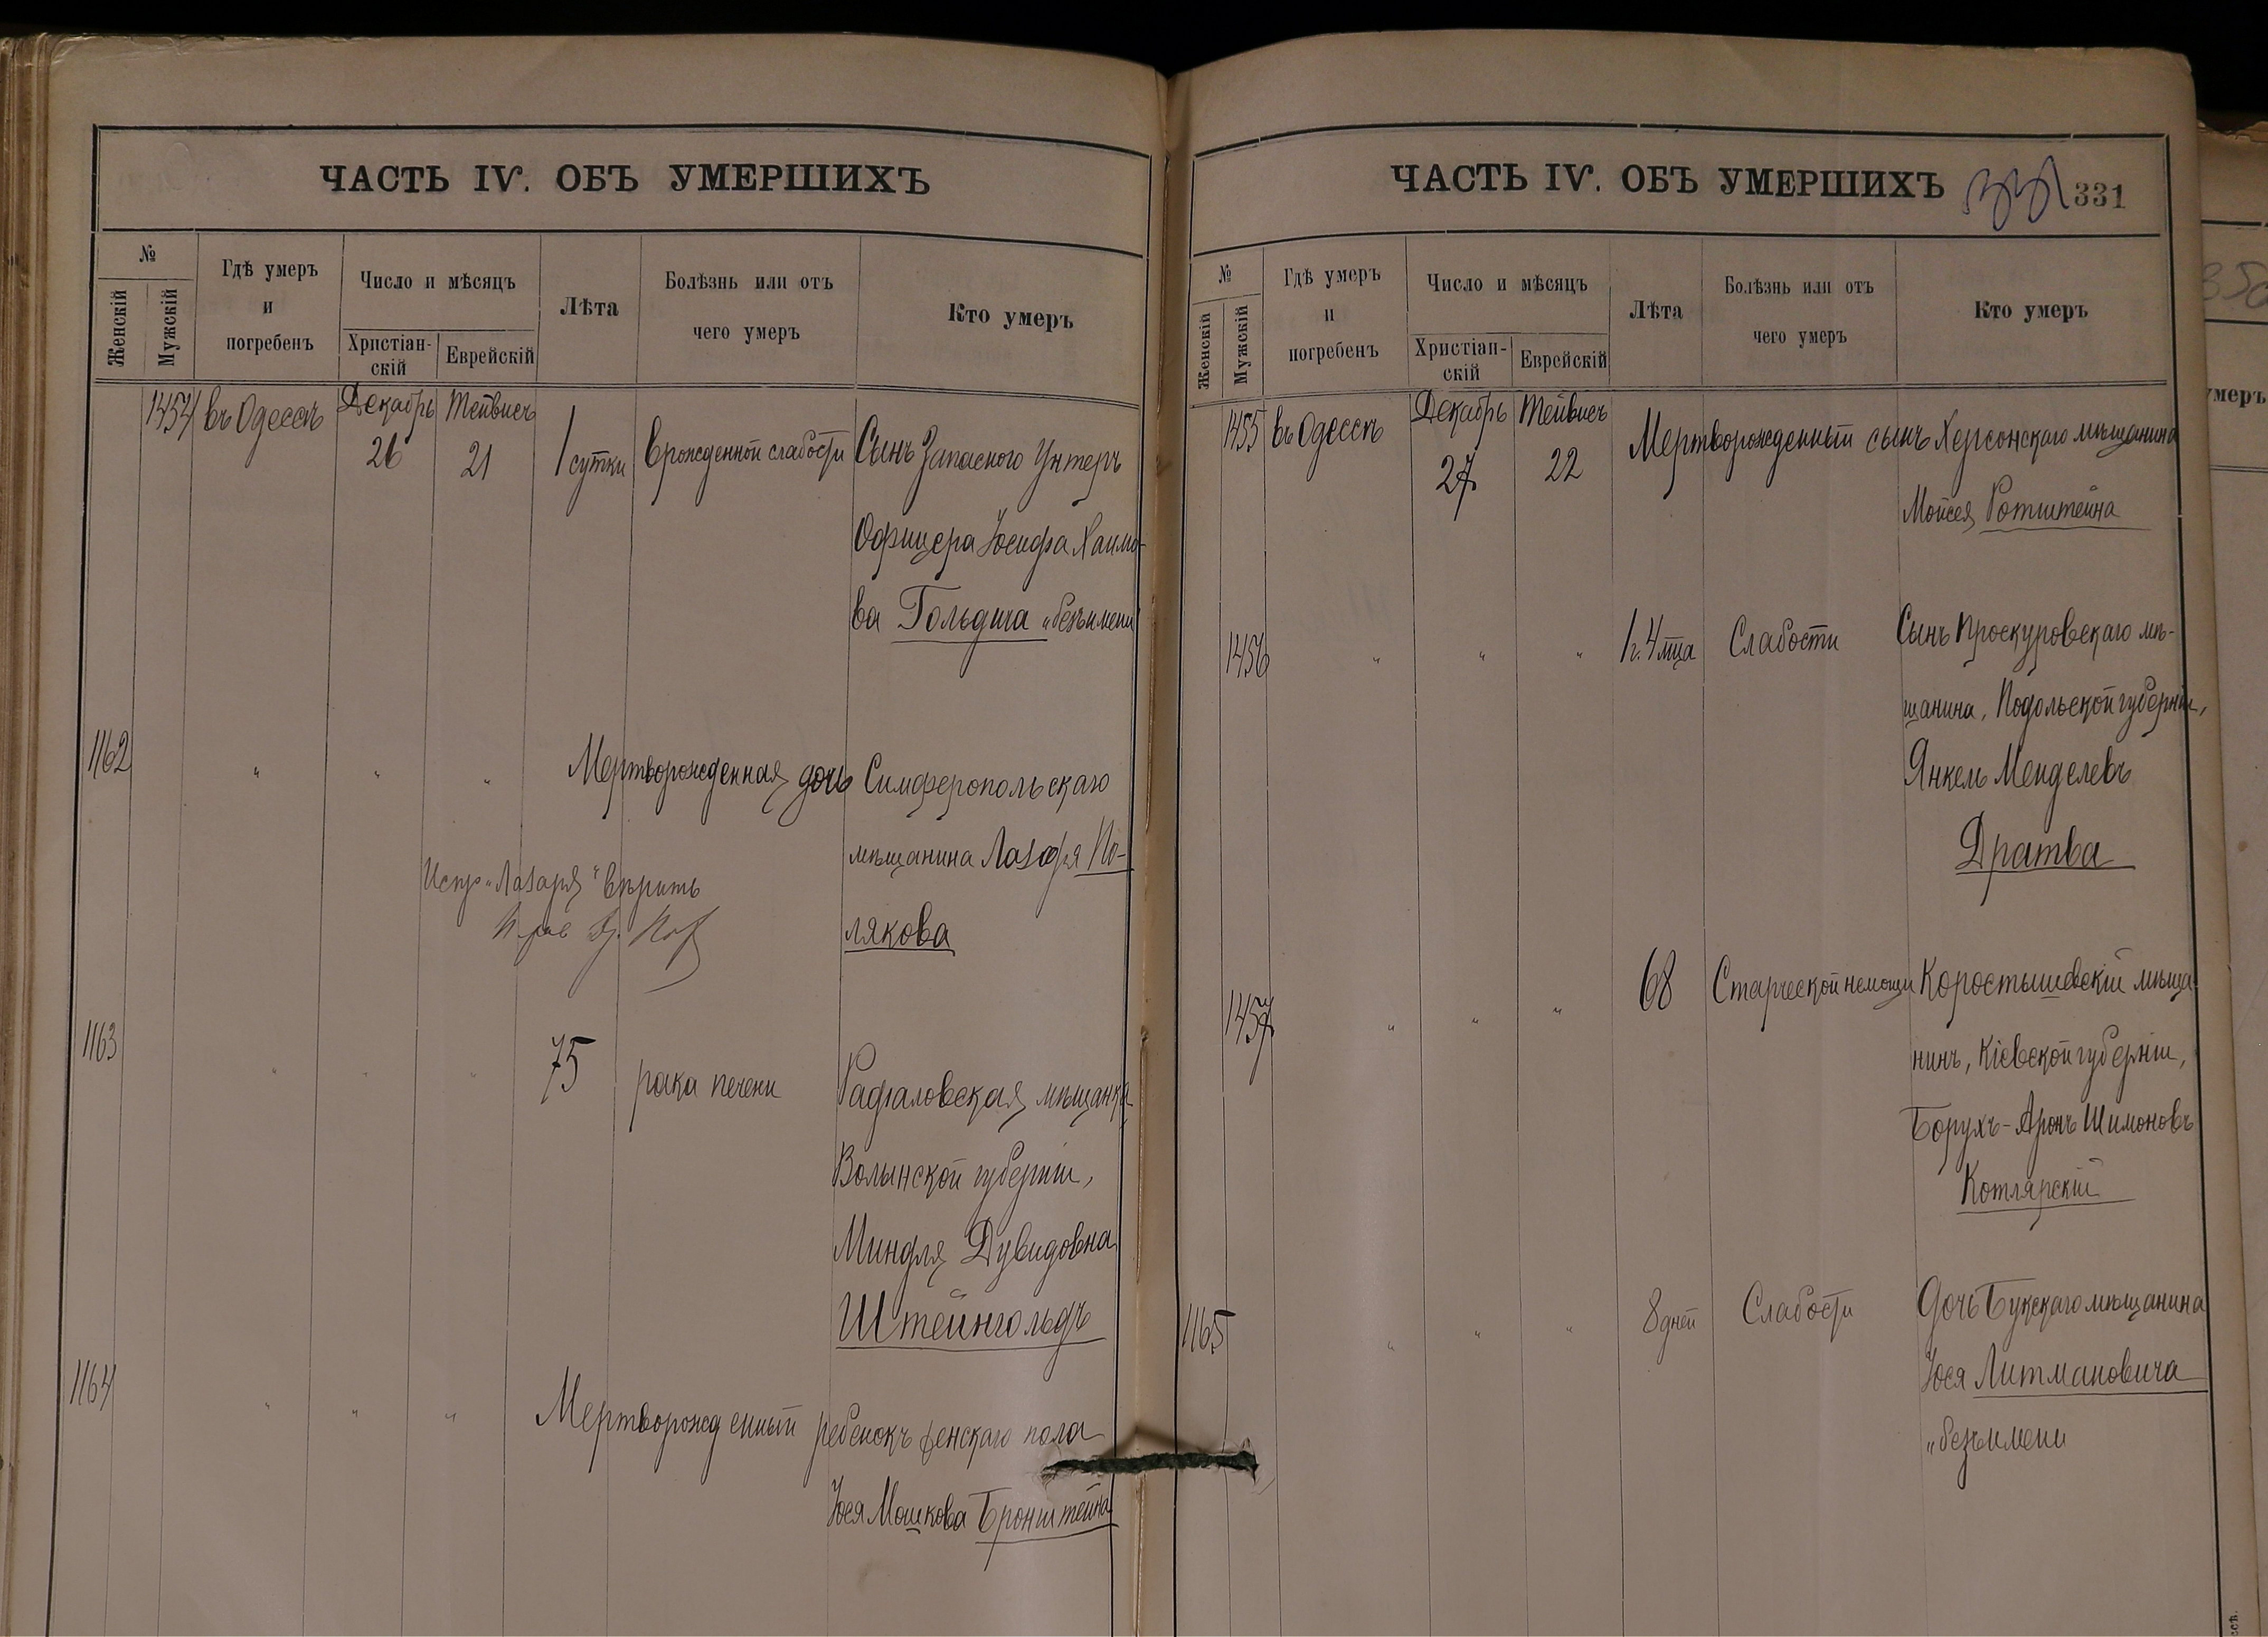 ЧАСТЬ IV. ОБЪ УМЕРШИХЪ
№
Женскій
Мужскій
Гдѣ умеръ
и
погребенъ
Число и мѣсяцъ
Христіан-
скій
Еврейскій
Лѣта
Болѣзнь или отъ
чего умеръ
Кто умеръ
1454 въ Одессѣ Декабрь Тейвисъ
26 21 1 сутки врожденной слабости Сынъ Запасного Унтеръ
Офицера Іосифа Хаимо-
ва Гольдича „безъ имени
1162 „ „ „ Мертворожденная дочь Симферопольскаго
мѣщанина Лазаря По-
лякова
Испр „Лазаря“ вѣрить
1163 „ „ „ 75 рака печени Рафаловская мѣщанка
Волынской губерніи,
Миндля Дувидовна
Штейнгольдъ
1164 „ „ „ Мертворожденный ребенокъ женскаго пола
Іося Мошкова Бронштейна
ЧАСТЬ IV. ОБЪ УМЕРШИХЪ 331 331
№
Женскій
Мужскій
Гдѣ умеръ
и
погребенъ
Число и мѣсяцъ
Христіан-
скій
Еврейскій
Лѣта
Болѣзнь или отъ
чего умеръ
Кто умеръ
1455 въ Одессѣ Декабрь Тейвисъ
27 22 Мертворожденный сынъ Херсонскаго мѣщанина
Мойсея Ротштейна
1456 „ „ „ 1 г. 4 мца Слабости Сынъ Проскуровскаго мѣ-
щанина, Подольской губерніи,
Янкель Менделевъ
Дратва
1457 „ „ „ 68 Старческой немощи Коростышевскій мѣща-
нинъ, Кіевской губерніи,
Борухъ-Аронъ Шимоновъ
Котлярскій
1165 „ „ „ 8 дней Слабости Дочь Букскаго мѣщанина
Іося Литмановича
„безъ имени
умеръ